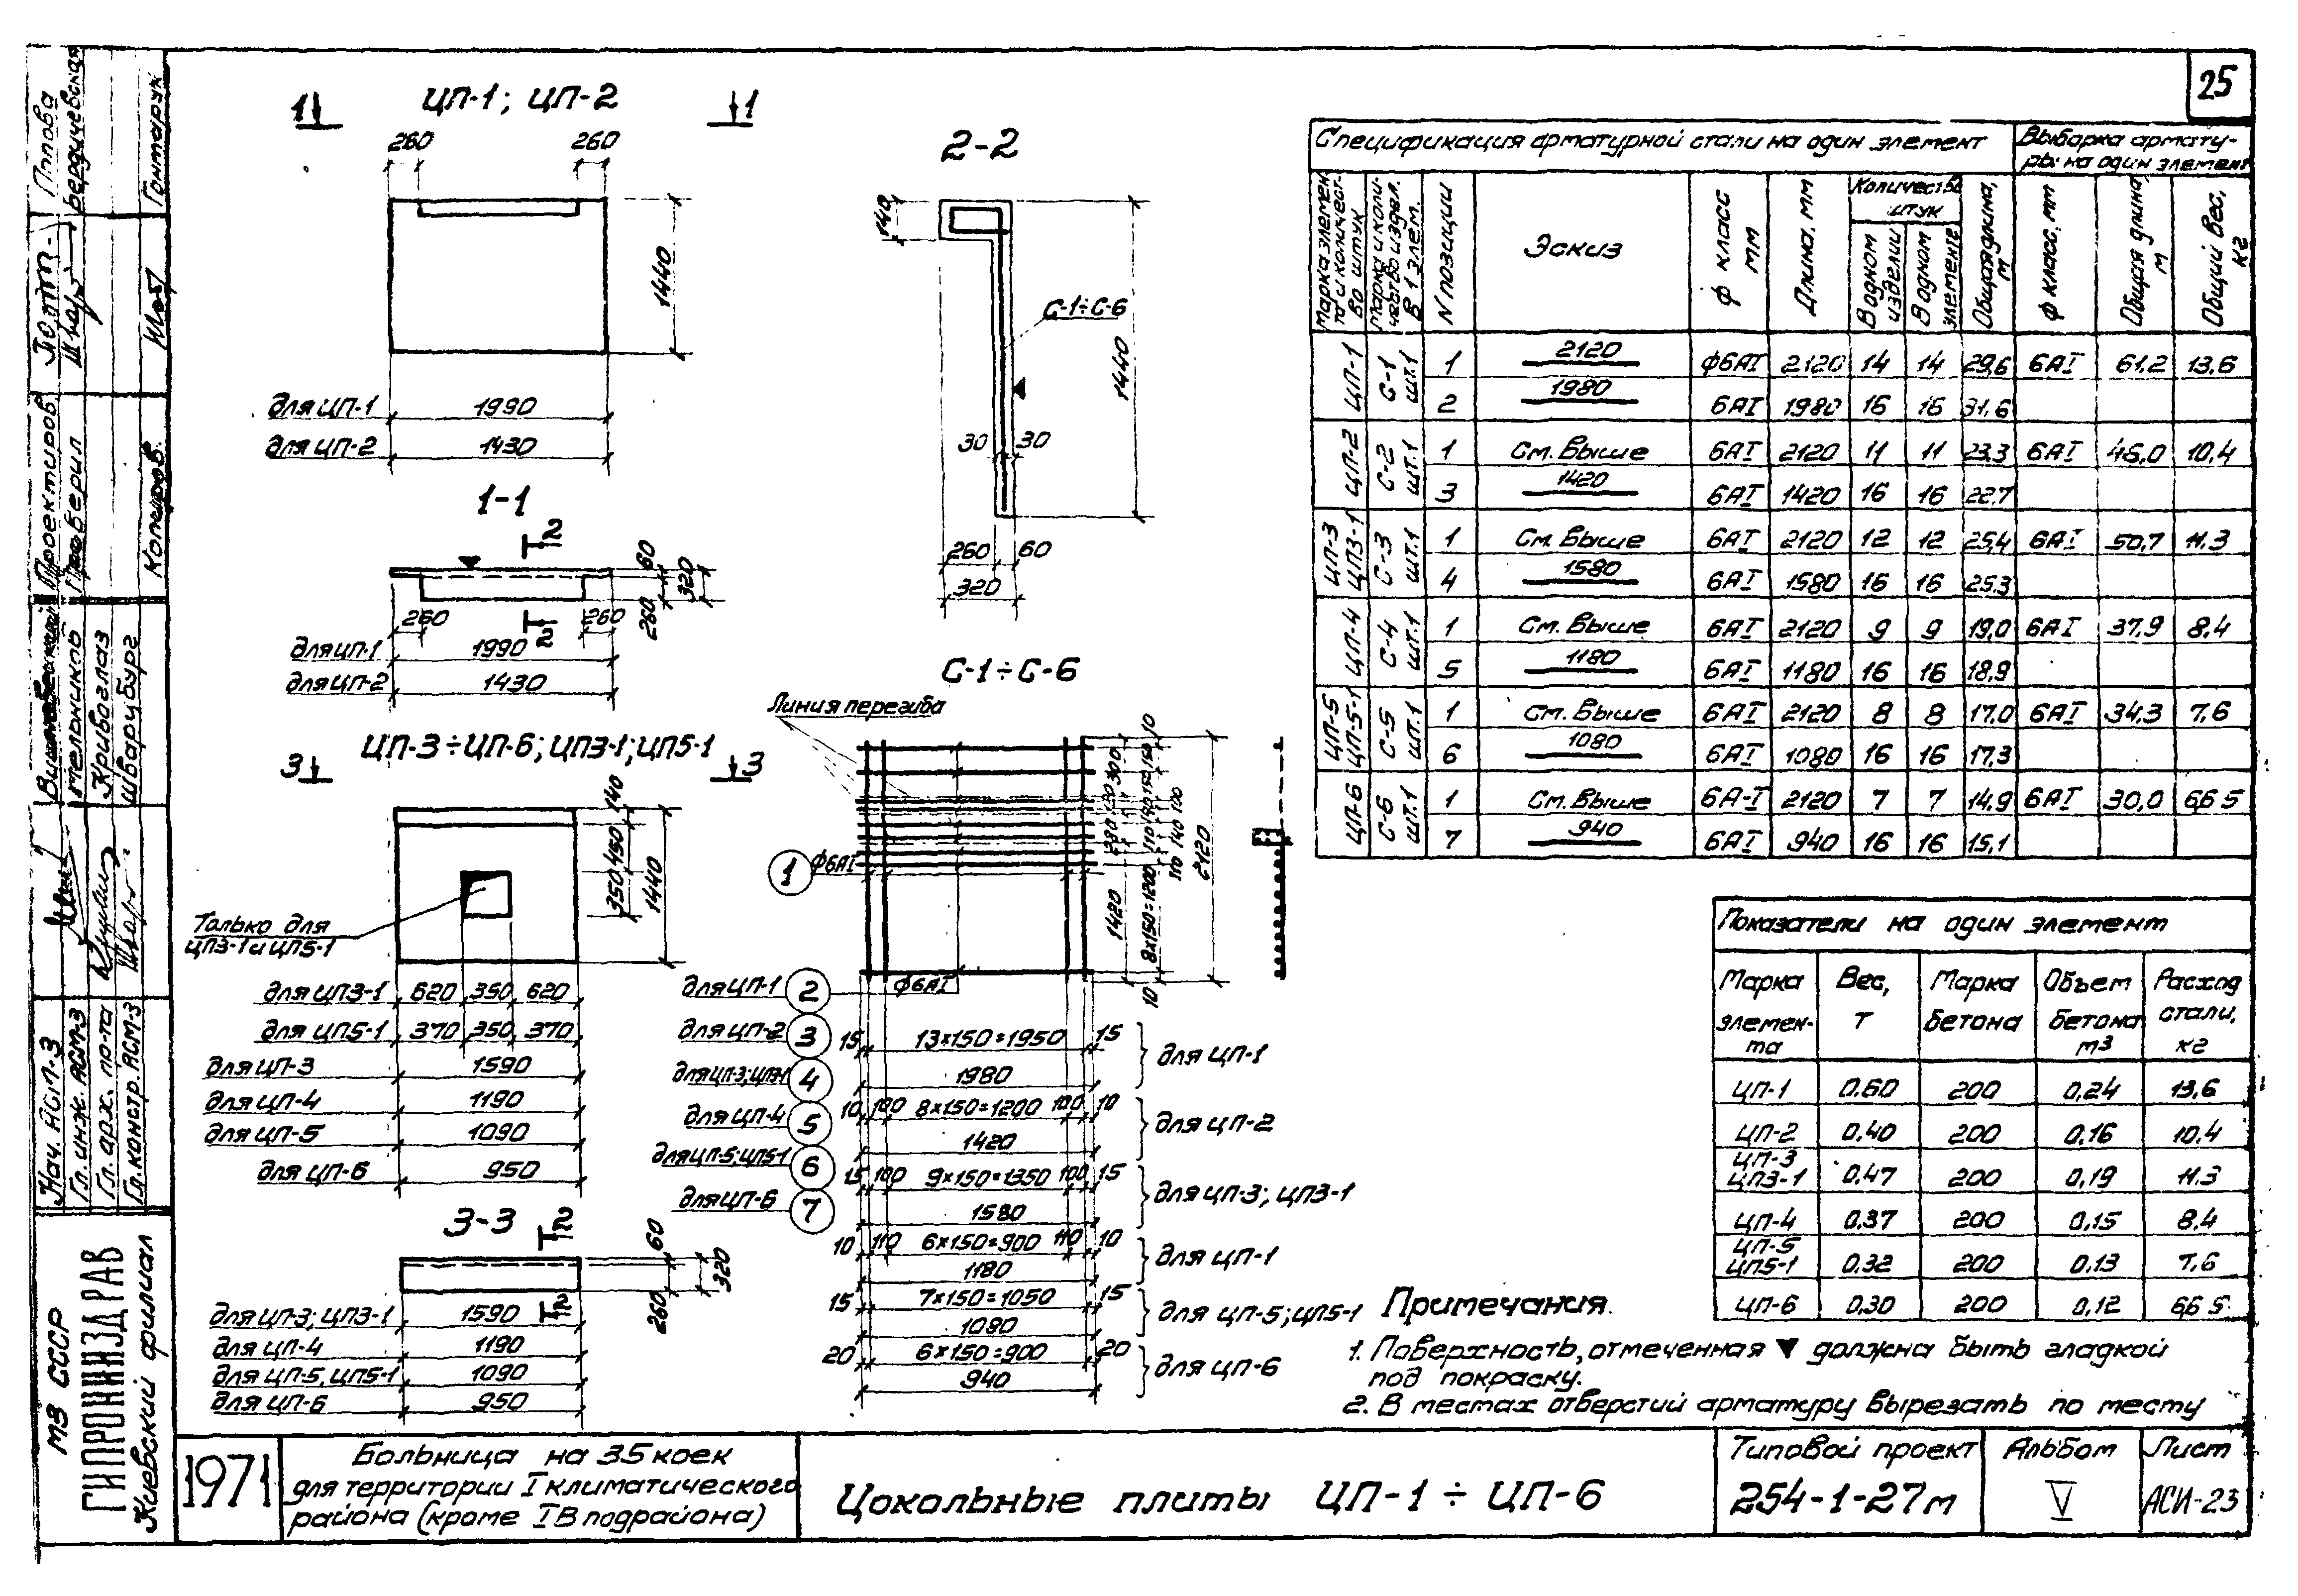 25
ЦП-1; ЦП-2
1 1
260 260
1440
для ЦП-1 1990
для ЦП-2 1430
1-1
2
60
320
260
260 260
2
для ЦП-1 1990
для ЦП-2 1430
ЦП-3÷ЦП-6; ЦП3-1; ЦП5-1
3 3
140
450
350
1440
Только для
ЦП3-1 и ЦП5-1
для ЦП3-1 620 350 620
для ЦП5-1 370 350 370
для ЦП-3 1590
для ЦП-4 1190
для ЦП-5 1090
для ЦП-6 950
3-3
2
60
320
260
2
для ЦП-3; ЦП3-1 1590
для ЦП-4 1190
для ЦП-5, ЦП5-1 1090
для ЦП-6 950
2-2
140
С-1÷С-6
1440
30 30
260 60
320
С-1÷С-6
Линия перегиба
1 ф6АI
10
300
2120
1420
8х150=1200
10
для ЦП-1 2 ф6АI
для ЦП-2 3
для ЦП-3; ЦП3-1 4
для ЦП-4 5
для ЦП-5; ЦП5-1 6
для ЦП-6 7
15 13х150=1950 15
1980 для ЦП-1
10 100 8х150=1200 100 10
1420 для ЦП-2
15 100 9х150=1350 100 15
1580 для ЦП-3; ЦП3-1
10 110 6х150=900 110 10
1180 для ЦП-1
15 7х150=1050 15
1080 для ЦП-5; ЦП5-1
20 6х150=900 20
940 для ЦП-6
Спецификация арматурной стали на один элемент
Выборка армату-
ры на один элемент
Марка элемен-
та и количест-
во штук
Марка и коли-
чество издел.
в 1 элем.
N позиции
Эскиз
ф класс
мм
Длина, мм
Количество
штук
В одном
изделии
В одном
элементе
Общая длина,
м
ф класс, мм
Общая длина,
м
Общий вес,
кг
ЦП-1 С-1 шт.1 1 2120 ф6АI 2120 14 14 29,6 6АI 61.2 13,6
2 1980 6АI 1980 16 16 31,6
ЦП-2 С-2 шт.1 1 См. выше 6АI 2120 11 11 23.3 6АI 46,0 10,4
3 1420 6АI 1420 16 16 22,7
ЦП-3 ЦП3-1 С-3 шт.1 1 См. выше 6АI 2120 12 12 25,4 6АI 50,7 11,3
4 1580 6АI 1580 16 16 25,3
ЦП-4 С-4 шт.1 1 См. выше 6АI 2120 9 9 19,0 6АI 37,9 8,4
5 1180 6АI 1180 16 16 18,9
ЦП-5 ЦП-5-1 С-5 шт.1 1 См. выше 6АI 2120 8 8 17,0 6АI 34,3 7,6
6 1080 6АI 1080 16 16 17,3
ЦП-6 С-6 шт.1 1 См. выше 6А-I 2120 7 7 14,9 6АI 30,0 6,65
7 940 6АI 940 16 16 15,1
Показатели на один элемент
Марка
элемен-
та
Вес,
т
Марка
бетона
Объем
бетона
м3
Расход
стали,
кг
ЦП-1 0.60 200 0,24 13,6
ЦП-2 0,40 200 0,16 10,4
ЦП-3
ЦП3-1 0,47 200 0,19 11.3
ЦП-4 0.37 200 0,15 8,4
ЦП-5
ЦП5-1 0.32 200 0.13 7,6
ЦП-6 0,30 200 0,12 6,65
Примечания.
1. Поверхность, отмеченная ▼ должна быть гладкой
под покраску.
2. В местах отверстий арматуру вырезать по месту
1971
Больница на 35 коек
для территории I климатического
района (кроме IВ подрайона)
Цокольные плиты ЦП-1 ÷ ЦП-6
Типовой проект
254-1-27м
Альбом
V
Лист
АСИ-23
МЗ СССР
ГИПРОНИИЗДРАВ
Киевский филиал
Нач. АСП-3
Гл. инж. АСМ-3
Гл. арх. пр-та
Гл. констр. АСМ-3
Кривоглаз
Шварцбург
Проектиров.
Проверил
Копиров.
Попова
Бердичевская
Гонтарук